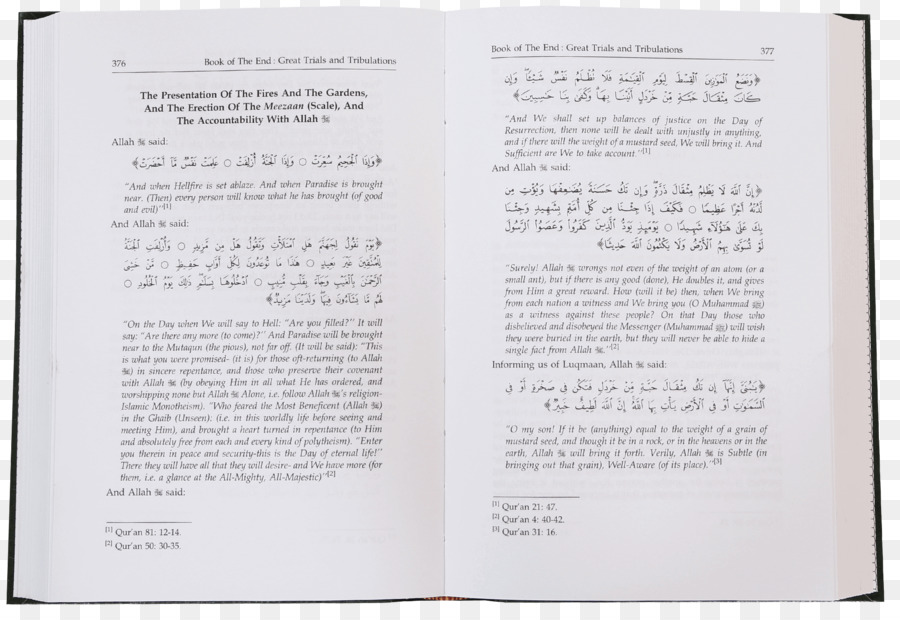 376 Book of The End : Great Trials and Tribulations
The Presentation Of The Fires And The Gardens,
And The Erection Of The Meezaan (Scale), And
The Accountability With Allah ﷻ
Allah ﷻ said:
﴿وَإِذَا ٱلْجَحِيمُ سُعِّرَتْ ○ وَإِذَا ٱلْجَنَّةُ أُزْلِفَتْ ○ عَلِمَتْ نَفْسٌ مَّا أَحْضَرَتْ﴾
"And when Hellfire is set ablaze. And when Paradise is brought
near. (Then) every person will know what he has brought (of good
and evil)"[1]
And Allah ﷻ said:
﴿يَوْمَ نَقُولُ لِجَهَنَّمَ هَلِ ٱمْتَلَأْتِ وَتَقُولُ هَلْ مِن مَّزِيدٍ ○ وَأُزْلِفَتِ ٱلْجَنَّةُ
لِلْمُتَّقِينَ غَيْرَ بَعِيدٍ ○ هَٰذَا مَا تُوعَدُونَ لِكُلِّ أَوَّابٍ حَفِيظٍ ○ مَّنْ خَشِىَ
ٱلرَّحْمَٰنَ بِٱلْغَيْبِ وَجَآءَ بِقَلْبٍ مُّنِيبٍ ○ ٱدْخُلُوهَا بِسَلَٰمٍ ذَٰلِكَ يَوْمُ ٱلْخُلُودِ ○
لَهُم مَّا يَشَآءُونَ فِيهَا وَلَدَيْنَا مَزِيدٌ﴾
"On the Day when We will say to Hell: "Are you filled?" It will
say: "Are there any more (to come)?" And Paradise will be brought
near to the Mutaqun (the pious), not far off. (It will be said): "This
is what you were promised- (it is) for those oft-returning (to Allah
ﷻ) in sincere repentance, and those who preserve their covenant
with Allah ﷻ (by obeying Him in all what He has ordered, and
worshipping none but Allah ﷻ Alone, i.e. follow Allah ﷻ's religion-
Islamic Monotheism). "Who feared the Most Beneficent (Allah ﷻ)
in the Ghaib (Unseen): (i.e. in this worldly life before seeing and
meeting Him), and brought a heart turned in repentance (to Him
and absolutely free from each and every kind of polytheism). "Enter
you therein in peace and security-this is the Day of eternal life!"
There they will have all that they will desire- and We have more (for
them, i.e. a glance at the All-Mighty, All-Majestic)"[2]
And Allah ﷻ said:
[1] Qur'an 81: 12-14.
[2] Qur'an 50: 30-35.
Book of The End : Great Trials and Tribulations 377
﴿وَنَضَعُ ٱلْمَوَٰزِينَ ٱلْقِسْطَ لِيَوْمِ ٱلْقِيَٰمَةِ فَلَا تُظْلَمُ نَفْسٌ شَيْـًٔا وَإِن
كَانَ مِثْقَالَ حَبَّةٍ مِّنْ خَرْدَلٍ أَتَيْنَا بِهَا وَكَفَىٰ بِنَا حَٰسِبِينَ﴾
"And We shall set up balances of justice on the Day of
Resurrection, then none will be dealt with unjustly in anything,
and if there will the weight of a mustard seed, We will bring it. And
Sufficient are We to take account."[1]
And Allah ﷻ said:
﴿إِنَّ ٱللَّهَ لَا يَظْلِمُ مِثْقَالَ ذَرَّةٍ وَإِن تَكُ حَسَنَةً يُضَٰعِفْهَا وَيُؤْتِ مِن
لَّدُنْهُ أَجْرًا عَظِيمًا ○ فَكَيْفَ إِذَا جِئْنَا مِن كُلِّ أُمَّةٍۭ بِشَهِيدٍ وَجِئْنَا
بِكَ عَلَىٰ هَٰٓؤُلَآءِ شَهِيدًا ○ يَوْمَئِذٍ يَوَدُّ ٱلَّذِينَ كَفَرُوا۟ وَعَصَوُا۟ ٱلرَّسُولَ
لَوْ تُسَوَّىٰ بِهِمُ ٱلْأَرْضُ وَلَا يَكْتُمُونَ ٱللَّهَ حَدِيثًا﴾
"Surely! Allah ﷻ wrongs not even of the weight of an atom (or a
small ant), but if there is any good (done), He doubles it, and gives
from Him a great reward. How (will it be) then, when We bring
from each nation a witness and We bring you (O Muhammad ﷺ)
as a witness against these people? On that Day those who
disbelieved and disobeyed the Messenger (Muhammad ﷺ) will wish
they were buried in the earth, but they will never be able to hide a
single fact from Allah ﷻ."[2]
Informing us of Luqmaan, Allah ﷻ said:
﴿يَٰبُنَىَّ إِنَّهَآ إِن تَكُ مِثْقَالَ حَبَّةٍ مِّنْ خَرْدَلٍ فَتَكُن فِى صَخْرَةٍ أَوْ فِى
ٱلسَّمَٰوَٰتِ أَوْ فِى ٱلْأَرْضِ يَأْتِ بِهَا ٱللَّهُ إِنَّ ٱللَّهَ لَطِيفٌ خَبِيرٌ﴾
"O my son! If it be (anything) equal to the weight of a grain of
mustard seed, and though it be in a rock, or in the heavens or in the
earth, Allah ﷻ will bring it forth. Verily, Allah ﷻ is Subtle (in
bringing out that grain), Well-Aware (of its place)."[3]
[1] Qur'an 21: 47.
[2] Qur'an 4: 40-42.
[3] Qur'an 31: 16.